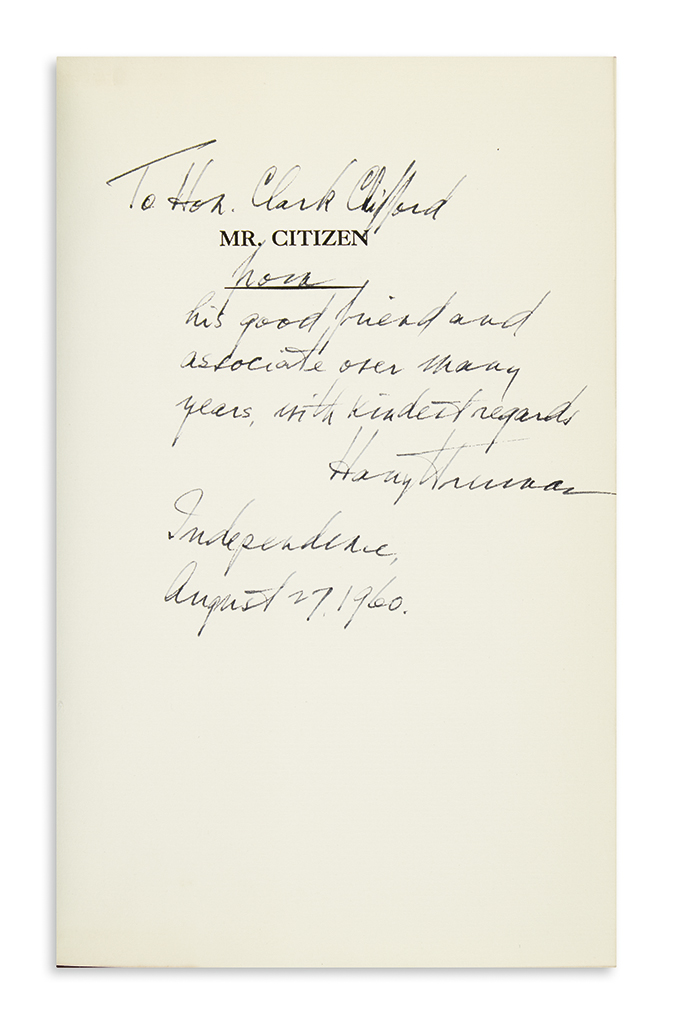 To Hon. Clark Clifford
MR. CITIZEN
from
his good friend and
associate over many
years, with kindest regards
Harry Truman
Independence,
August 27, 1960.